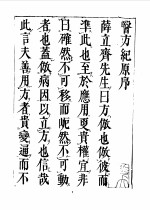 醫方紀原序
薛立齊先生曰方倣也倣彼而
準此也至於應用更貴權宜非
曰確然不可移而呢然不可動
者也蓋倣病因以立方也信哉
此言夫善用方者貴變通而不